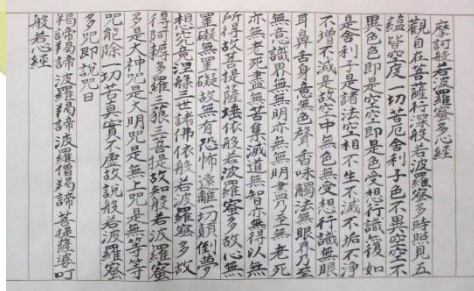 摩訶般若波羅蜜多心経
觀自在菩薩行深般若波羅蜜多時照見五
蘊皆空度一切苦厄舍利子色不異空空不
異色色即是空空即是色受想行識亦復如
是舍利子是諸法空相不生不滅不垢不浄
不増不減是故空中無色無受想行識無眼
耳鼻舌身意無色聲香味觸法無眼界乃至
無意識界無無明亦無無明盡乃至無老死
亦無老死盡無苦集滅道無智亦無得以無
所得故菩提薩埵依般若波羅蜜多故心無
罣礙無罣礙故無有恐怖遠離一切顛倒夢
想究竟涅槃三世諸佛依般若波羅蜜多故
得阿耨多羅三藐三菩提故知般若波羅蜜
多是大神呪是大明呪是無上呪是無等等
呪能除一切苦真實不虚故説般若波羅蜜
多呪即説呪曰
羯諦羯諦波羅羯諦波羅僧羯諦菩提薩婆訶
般若心経